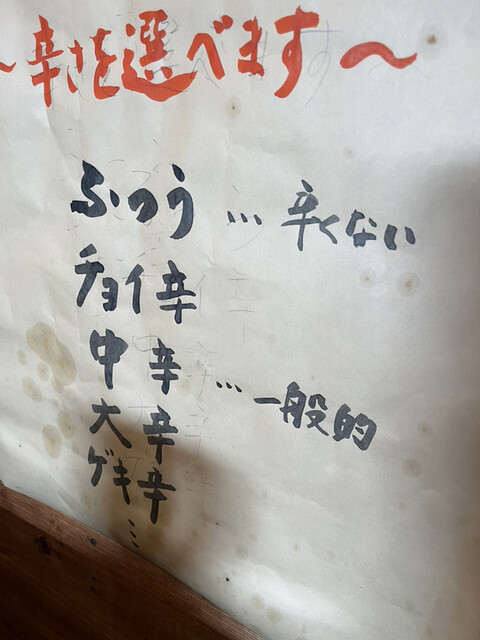 〜辛さを選べます〜
ふつう…辛くない
チョイ辛
中辛…一般的
大辛
ゲキ辛
…